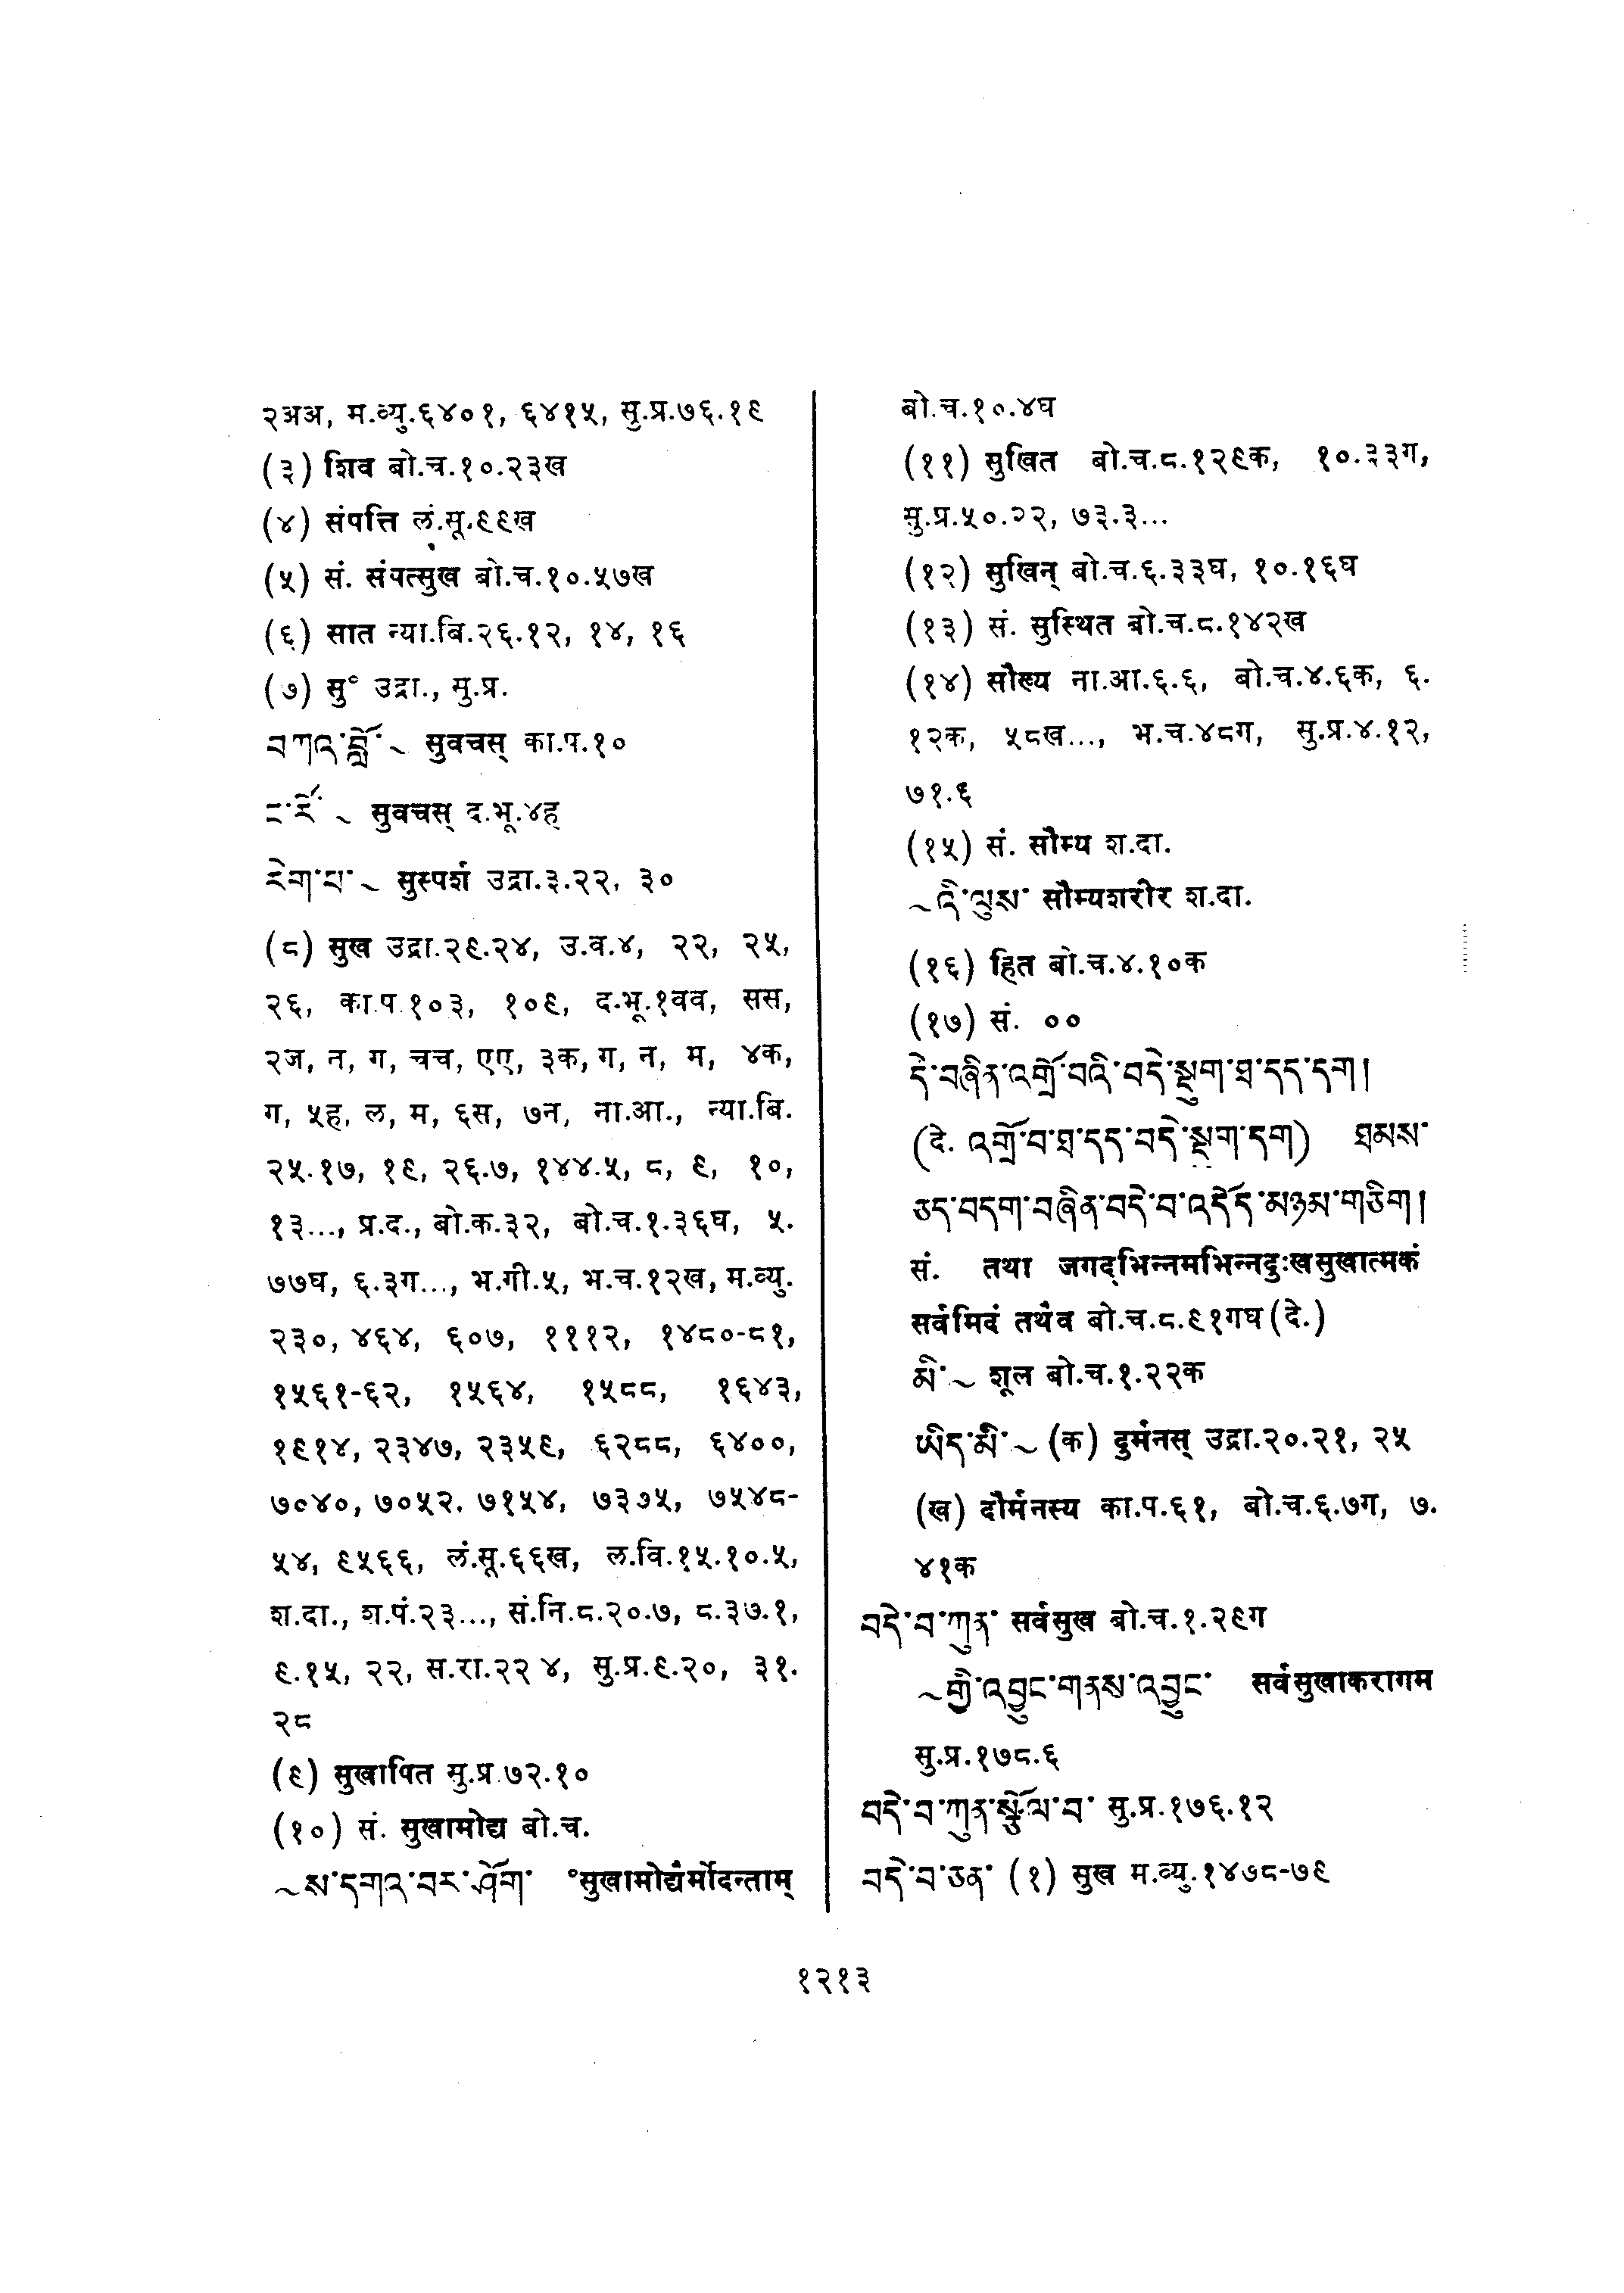 २अअ, म.व्यु.६४०१, ६४१५, सु.प्र.७६.१९
(३) शिव बो.च.१०.२३ख
(४) संपत्ति लं.सू.९९ख
(५) सं. संपत्सुख बो.च.१०.५७ख
(६) सात न्या.बि.२६.१२, १४, १६
(७) सु° उद्रा., सु.प्र.
བཀའ་བློ་ ~ सुवचस् का.प.१०
ང་རོ་ ~ सुवचस् द.भू.४ह
རེག་པ་ ~ सुस्पर्श उद्रा.३.२२, ३०
(८) सुख उद्रा.२९.२४, उ.व.४, २२, २५,
२६, का.प.१०३, १०९, द.भू.१वव, सस,
२ज, न, ग, चच, एए, ३क, ग, न, म, ४क,
ग, ५ह, ल, म, ६स, ७न, ना.आ., न्या.बि.
२५.१७, १९, २६.७, १४४.५, ८, ९, १०,
१३..., प्र.द., बो.क.३२, बो.च.१.३६घ, ५.
७७घ, ६.३ग..., भ.गी.५, भ.च.१२ख, म.व्यु.
२३०, ४६४, ६०७, १११२, १४८०-८१,
१५६१-६२, १५६४, १५८८, १६४३,
१९१४, २३४७, २३५९, ६२८८, ६४००,
७०४०, ७०५२, ७१५४, ७३७५, ७५४८-
५४, ९५६६, लं.सू.६६ख, ल.वि.१५.१०.५,
श.दा., श.पं.२३..., सं.नि.८.२०.७, ८.३७.१,
९.१५, २२, स.रा.२२ ४, सु.प्र.९.२०, ३१.
२८
(९) सुखापित सु.प्र.७२.१०
(१०) सं. सुखामोद्य बो.च.
~ས་དགའ་བར་ཤོག་ °सुखामोद्यैर्मोदन्ताम्
बो.च.१०.४घ
(११) सुखित बो.च.८.१२९क, १०.३३ग,
सु.प्र.५०.२२, ७३.३...
(१२) सुखिन् बो.च.६.३३घ, १०.१६घ
(१३) सं. सुस्थित बो.च.८.१४२ख
(१४) सौख्य ना.आ.६.६, बो.च.४.६क, ६.
१२क, ५८ख..., भ.च.४८ग, सु.प्र.४.१२,
७१.६
(१५) सं. सौम्य श.दा.
~འི་ལུས་ सौम्यशरीर श.दा.
(१६) हित बो.च.४.१०क
(१७) सं. ००
དེ་བཞིན་འགྲོ་བའི་བདེ་སྡུག་ཐ་དད་དག།
(दे. འགྲོ་བ་ཐ་དད་བདེ་སྡུག་དག) ཐམས་
ཅད་བདག་བཞིན་བདེ་བ་འདོད་མཉམ་གཅིག།
सं. तथा जगद्भिन्नमभिन्नदुःखसुखात्मकं
सर्वमिदं तथैव बो.च.८.९१गघ (दे.)
མི་ ~ शूल बो.च.१.२२क
ཡིད་མི་ ~ (क) दुर्मनस् उद्रा.२०.२१, २५
(ख) दौर्मनस्य का.प.६१, बो.च.६.७ग, ७.
४१क
བདེ་བ་ཀུན་ सर्वसुख बो.च.१.२९ग
~གྱི་འབྱུང་གནས་འབྱུང་ सर्वसुखाकरागम
सु.प्र.१७८.६
བདེ་བ་ཀུན་སྩོལ་བ་ सु.प्र.१७६.१२
བདེ་བ་ཅན་ (१) सुख म.व्यु.१४७८-७९
१२१३